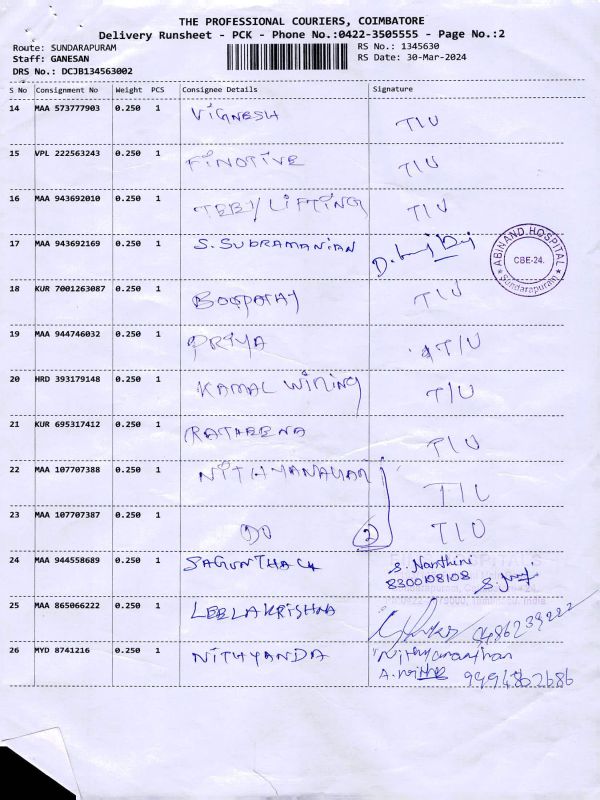 THE PROFESSIONAL COURIERS, COIMBATORE
Delivery Runsheet - PCK - Phone No.:0422-3505555 - Page No.:2
Route: SUNDARAPURAM
Staff: GANESAN
DRS No.: DCJB134563002
RS No.: 1345630
RS Date: 30-Mar-2024
S No Consignment No Weight PCS Consignee Details Signature
14 MAA 573777903 0.250 1 VIGNESH T/U
15 VPL 222563243 0.250 1 FINOTIVE T/U
16 MAA 943692010 0.250 1 LIFTING T/U
17 MAA 943692169 0.250 1 S. SUBRAMANIAN
ABINAND HOSPITAL
CBE-24.
Sundarapuram
18 KUR 7001263087 0.250 1 T/U
19 MAA 944746032 0.250 1 PRIYA T/U
20 HRD 393179148 0.250 1 KAMAL WIRING T/U
21 KUR 695317412 0.250 1 RATHEENA T/U
22 MAA 107707388 0.250 1 T/U
23 MAA 107707387 0.250 1 DO 2 T/U
24 MAA 944558689 0.250 1 S. Nanthini
8300108108
25 MAA 865066222 0.250 1 LEELAKRISHNA
26 MYD 8741216 0.250 1 NITHYANDA